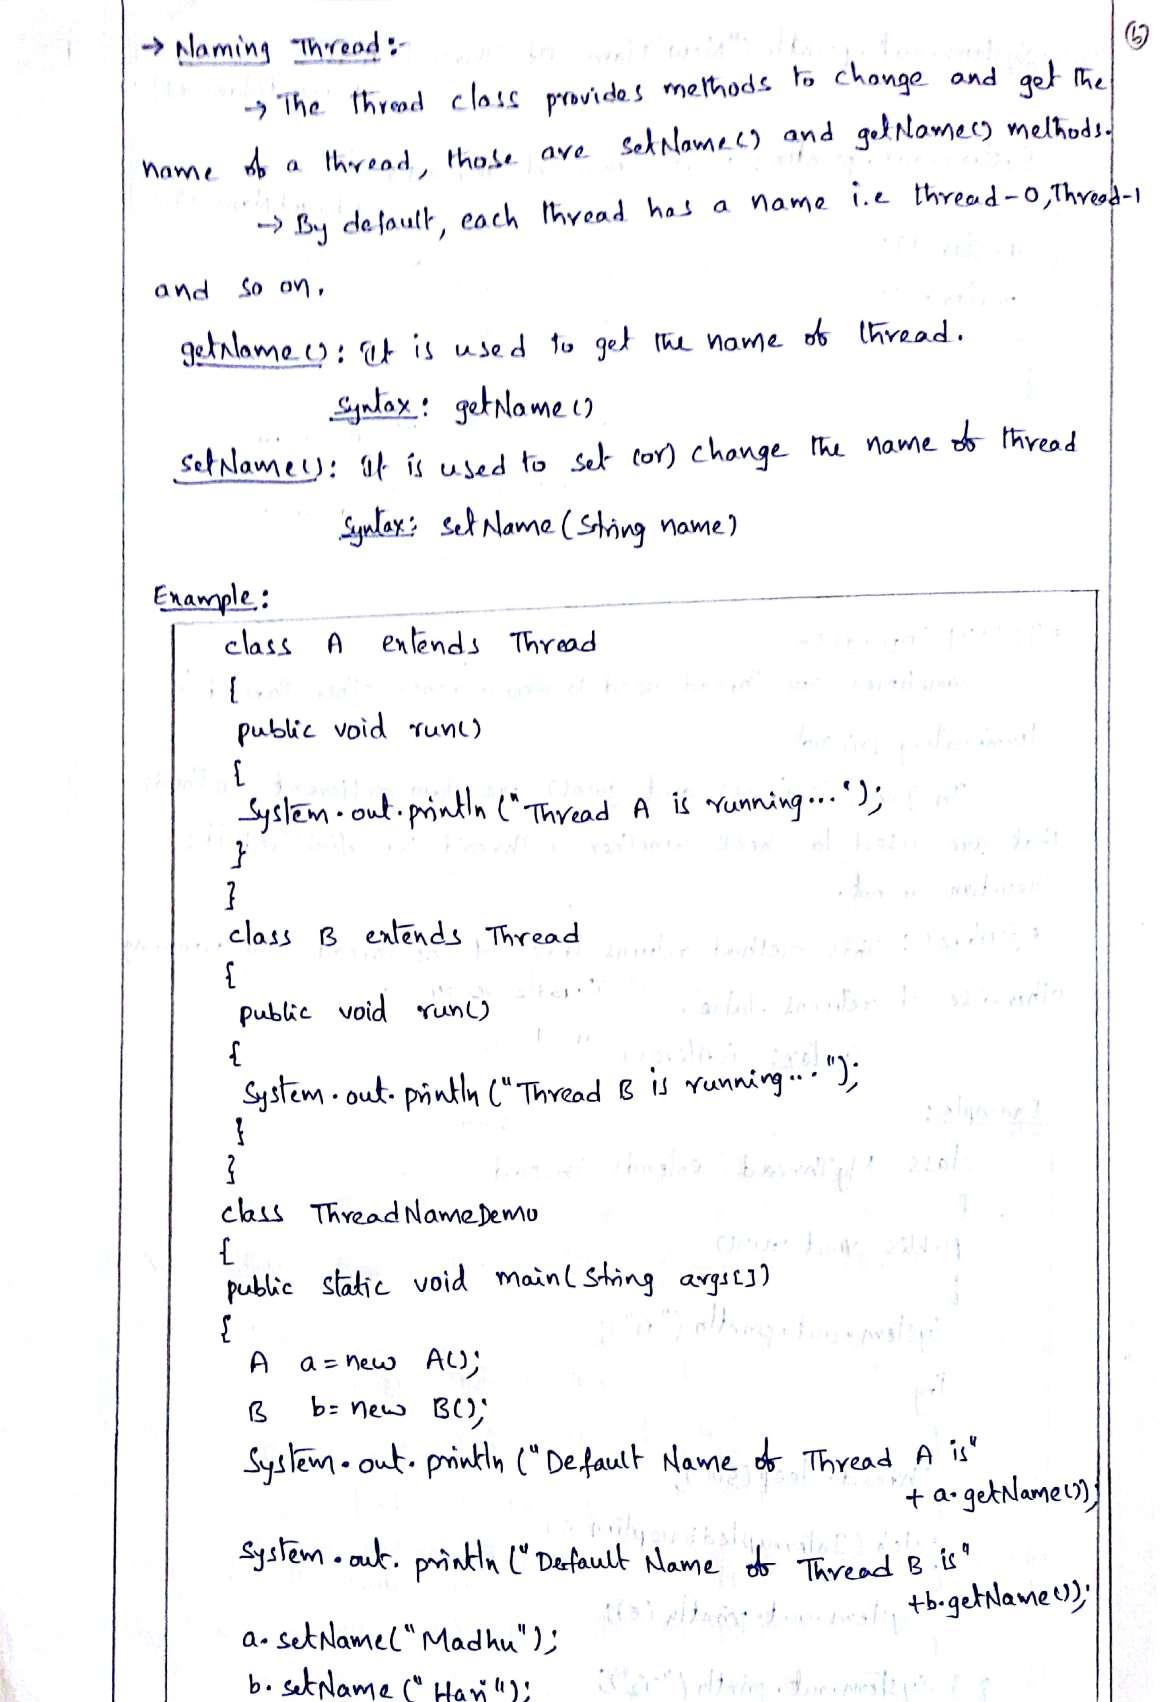 6
→ Naming Thread :-
→ The thread class provides methods to change and get the
name of a thread, those are setName() and getName() methods.
→ By default, each thread has a name i.e thread-0, Thread-1
and so on.
getName(): It is used to get the name of thread.
Syntax: getName()
setName(): It is used to set (or) change the name of thread
Syntax: setName(String name)
Example:
class A extends Thread
{
public void run()
{
System.out.println("Thread A is running...");
}
}
class B extends Thread
{
public void run()
{
System.out.println("Thread B is running...");
}
}
class ThreadNameDemo
{
public static void main(String args[])
{
A a=new A();
B b=new B();
System.out.println("Default Name of Thread A is"
+ a.getName());
System.out.println("Default Name of Thread B is"
+b.getName());
a.setName("Madhu");
b.setName("Hari");